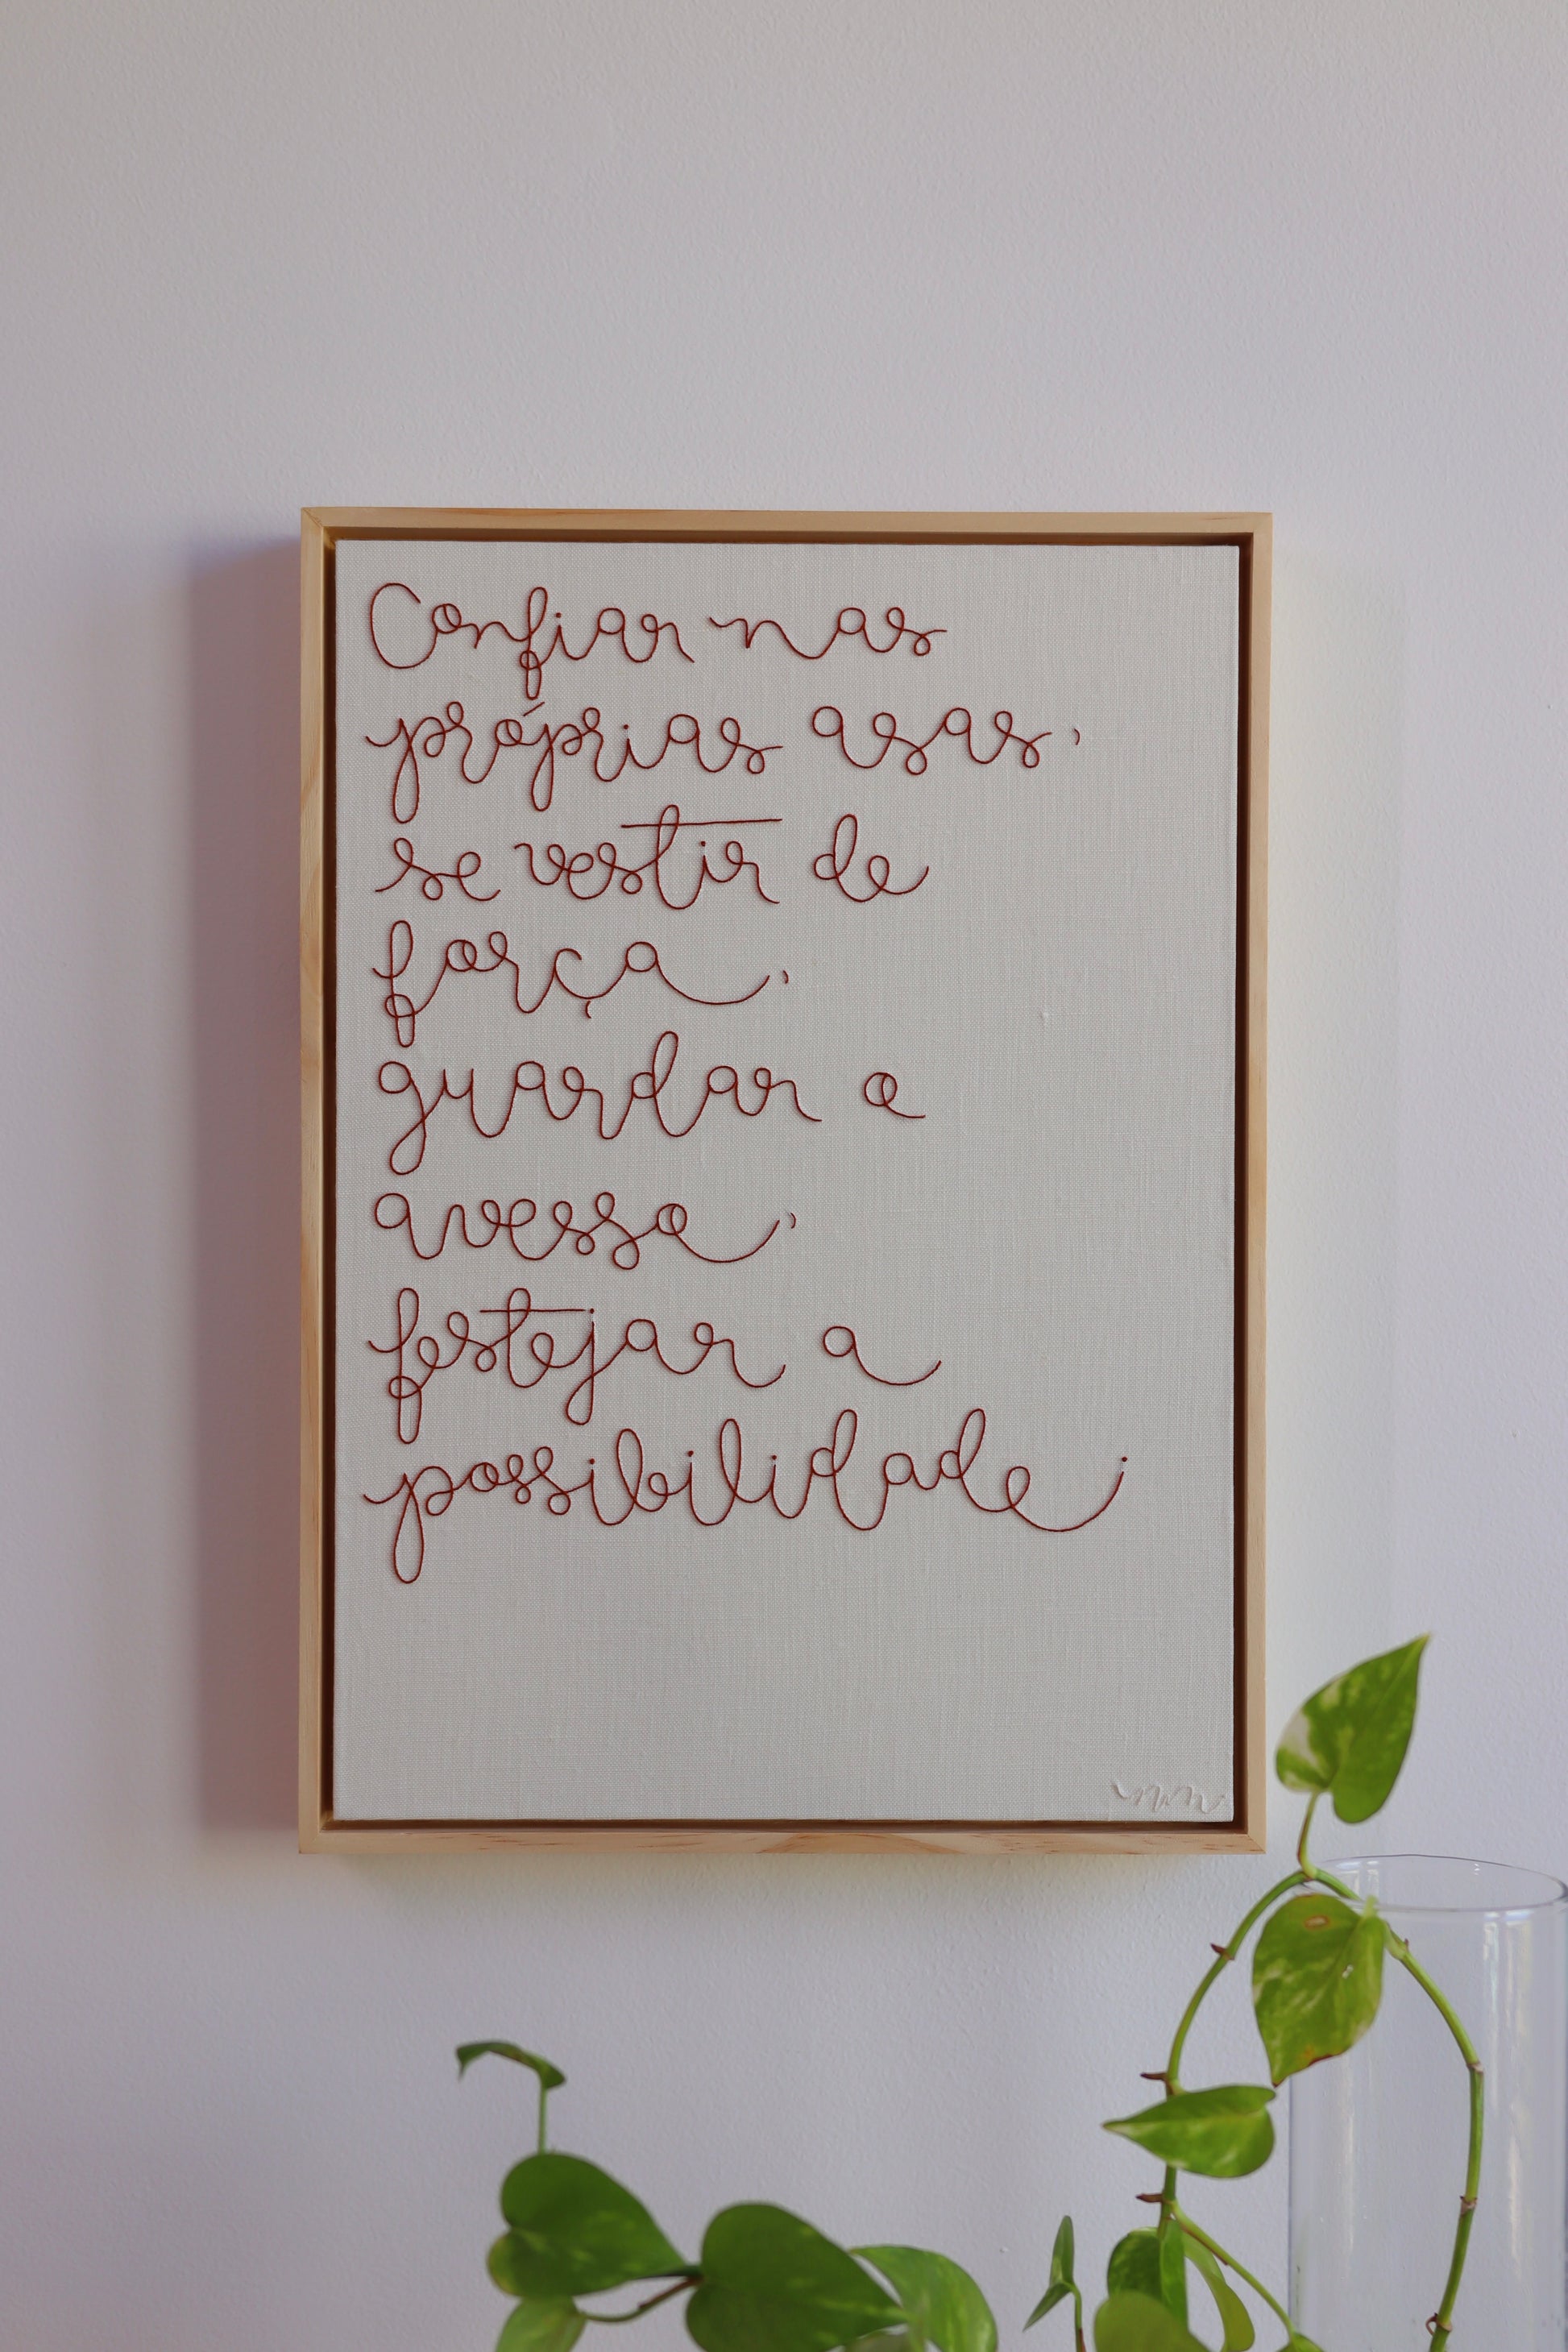 Confiar nas
próprias asas,
se vestir de
força,
guardar o
avesso,
festejar a
possibilidade;